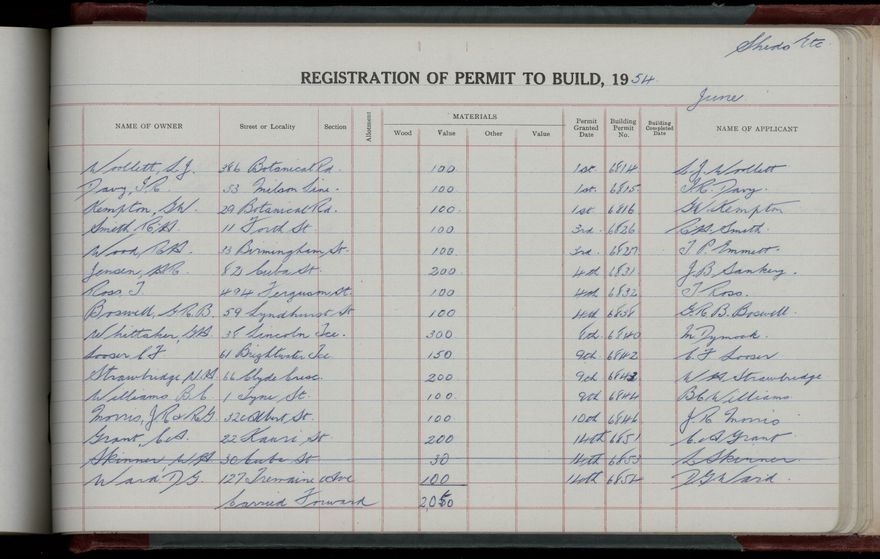 Sheds Etc
REGISTRATION OF PERMIT TO BUILD, 1954
June
NAME OF OWNER Street or Locality Section Allotment MATERIALS Wood Value Other Value Permit Granted Date Building Permit No. Building Completed Date NAME OF APPLICANT
Woollett, S.J. 386 Botanical Rd. 100 1st 6814 S.J. Woollett
Davy, 53 Milson Line. 100 1st. 6815 Davy.
Kempton, G.W. 29 Botanical Rd. 100 1st 6816 G.W. Kempton
Smith, R.A. 11 Ford St 100 3rd. 6826 R.A. Smith.
Wood, R.A. 33 Birmingham St. 100 3rd. 6827 T. P. Emmett.
Jensen, 82 Cuba St. 200 4th 6831 J.B. Sankey.
Ross. J 494 Ferguson St. 100 4th 6832 J Ross.
Boswell, G.R.B. 59 Lyndhurst St 100 4th 6838 G.R.B. Boswell.
Whittaker, G.A. 38 Lincoln Tce. 300 8th 6840 M Dymock.
Looser C F 61 Brightwater Tce 150 9th 6842 C F Looser
Strawbridge, W.A. 66 Clyde Cresc. 200 9th 6843 W A Strawbridge
Williams, B.C. 1 Tyne St. 100 9th 6844 B C Williams.
Morris, J.R. & R.G. 326 Albert St. 100 10th 6846 J. R. Morris
Grant, C.A. 22 Kauri St 200 14th 6851 C. A Grant
Skinner, W.A. 30 Cuba St 30 14th 6853 Skinner
Ward D G. 127 Tremaine Ave 100 14th 6854 D G Ward.
Carried Forward 2050